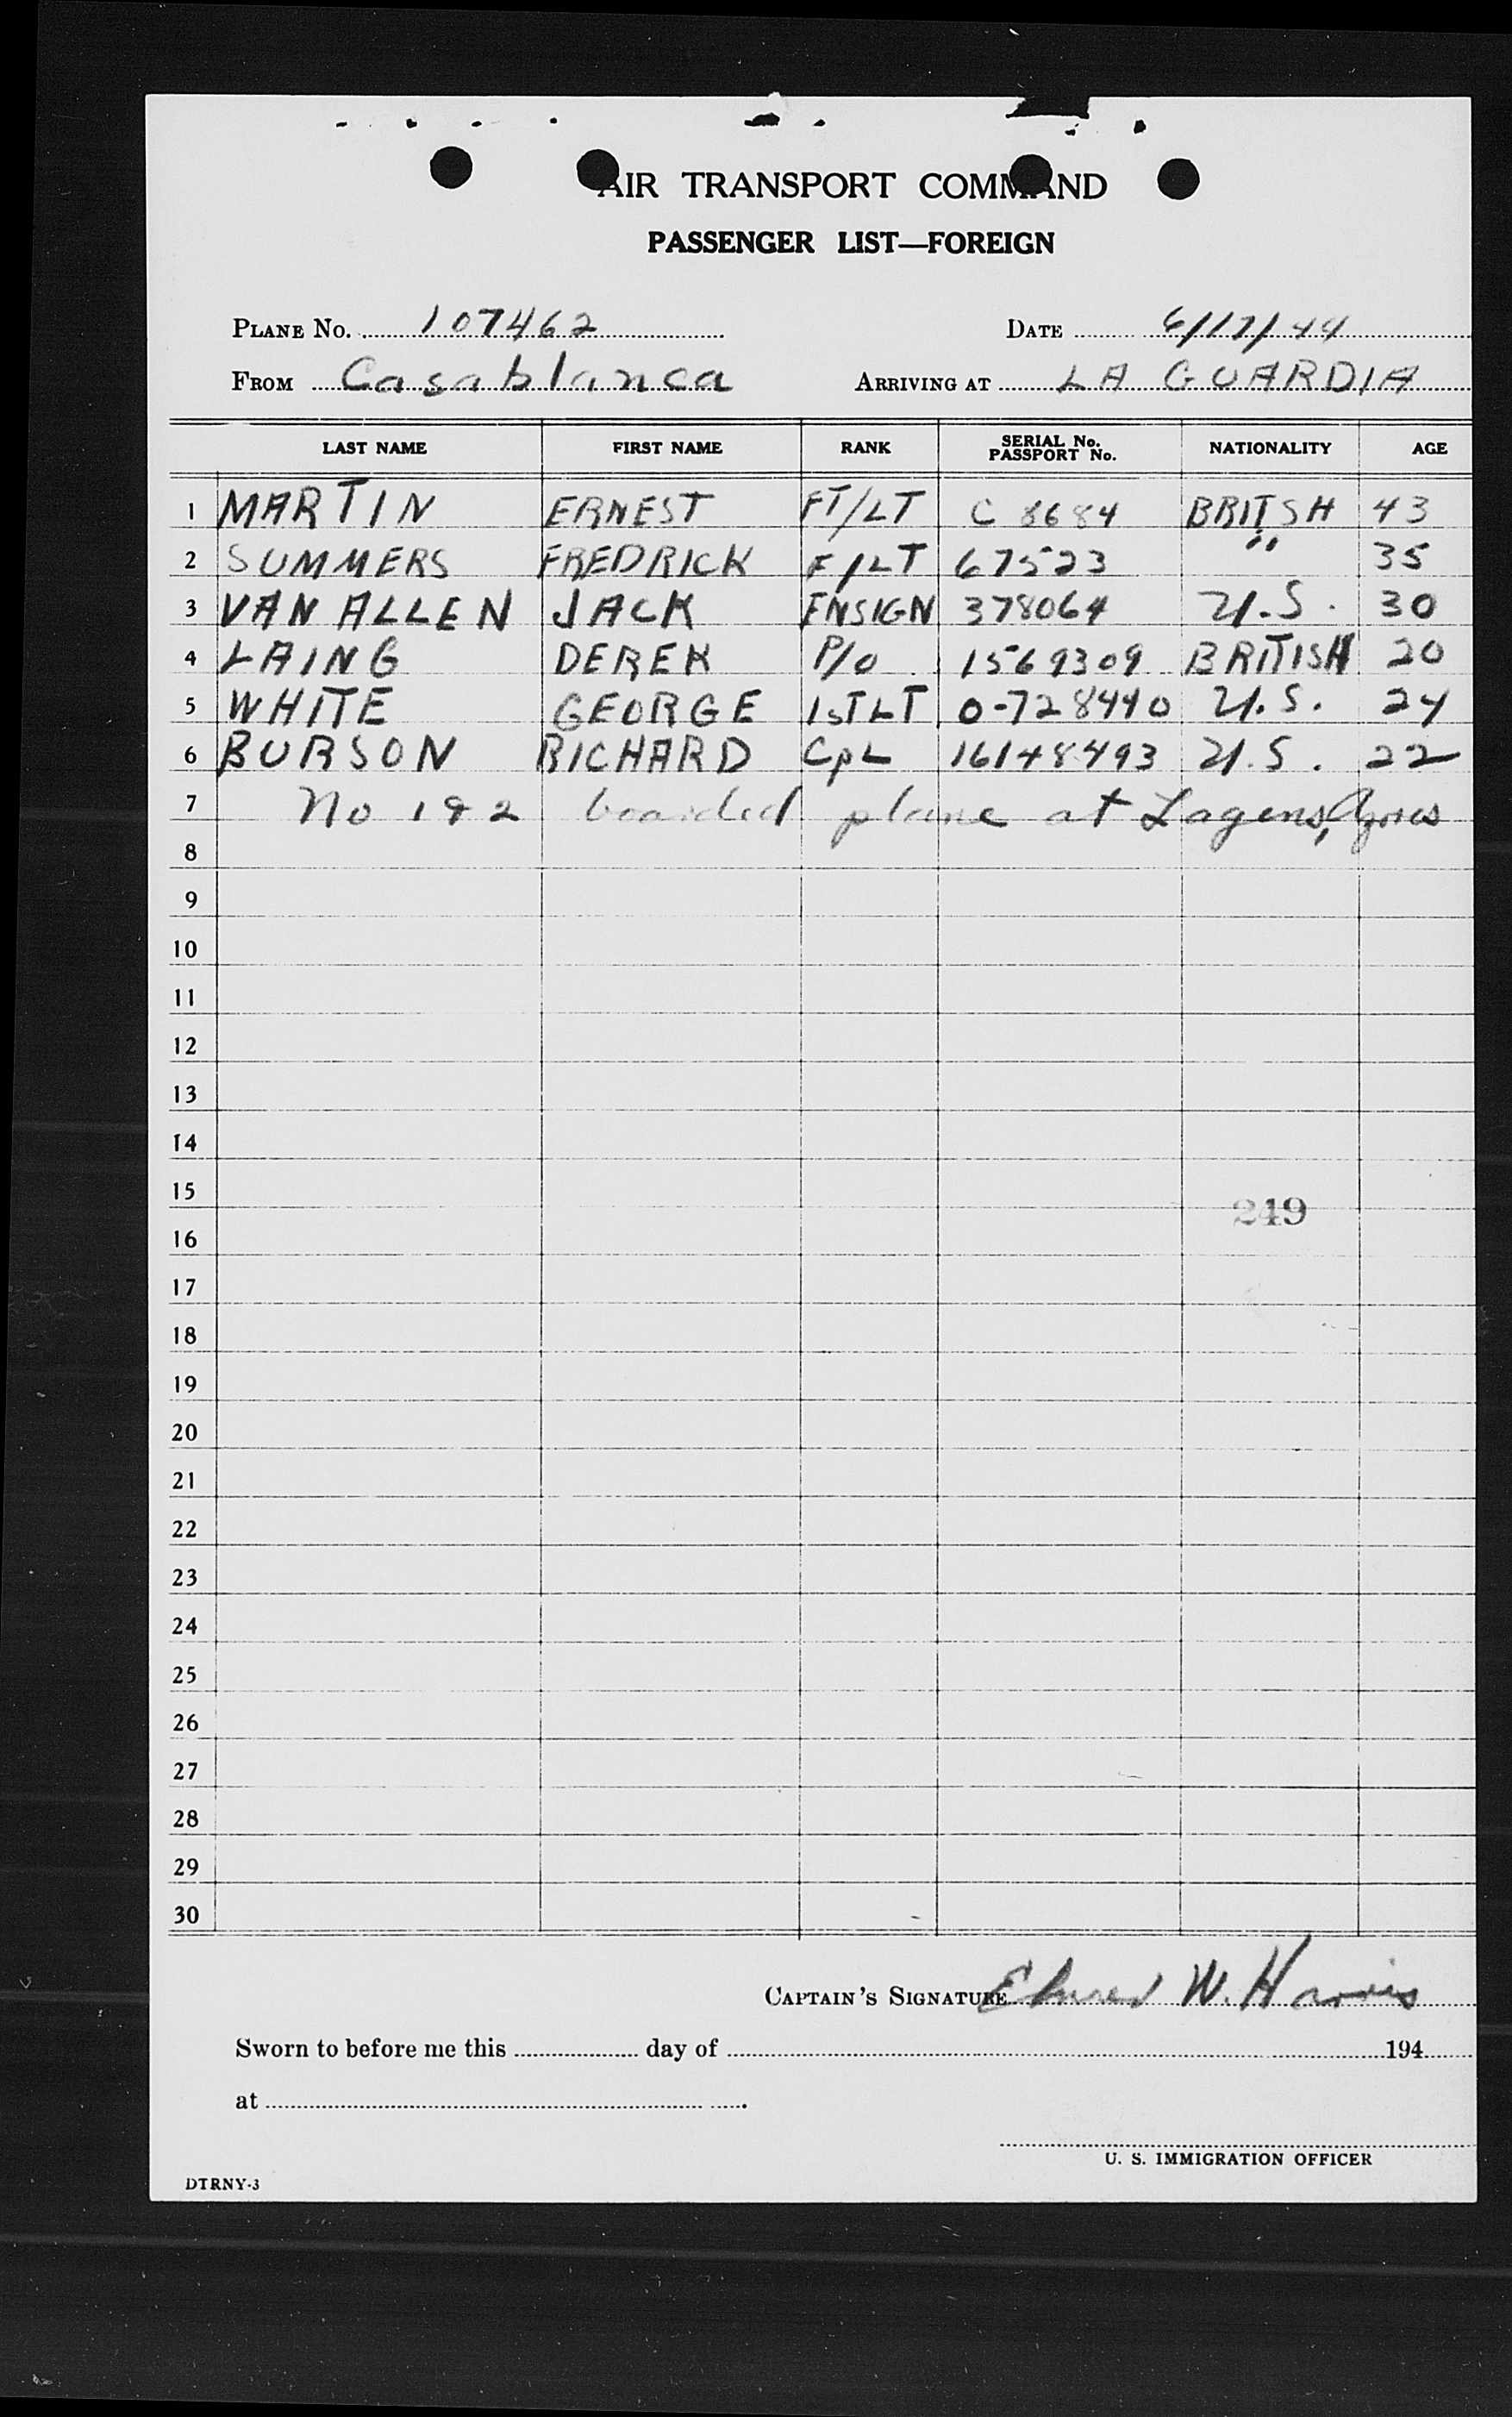 AIR TRANSPORT COMMAND
PASSENGER LIST—FOREIGN
PLANE No. 107462 DATE 6/17/44
FROM Casablanca ARRIVING AT LA GUARDIA
LAST NAME FIRST NAME RANK SERIAL No. PASSPORT No. NATIONALITY AGE
1 MARTIN ERNEST FT/LT C 8684 BRITSH 43
2 SUMMERS FREDRICK F/LT 67523 " 35
3 VAN ALLEN JACK ENSIGN 378064 U.S. 30
4 LAING DEREK P/O 1569309 BRITISH 20
5 WHITE GEORGE 1STLT 0-728440 U.S. 24
6 BURSON RICHARD CpL 16148493 U.S. 22
7 No 1 & 2 boarded plane at Lagens, Azores
8
9
10
11
12
13
14
15
249
16
17
18
19
20
21
22
23
24
25
26
27
28
29
30
CAPTAIN'S SIGNATURE W. Harris
Sworn to before me this day of 194
at
U. S. IMMIGRATION OFFICER
DTRNY-3